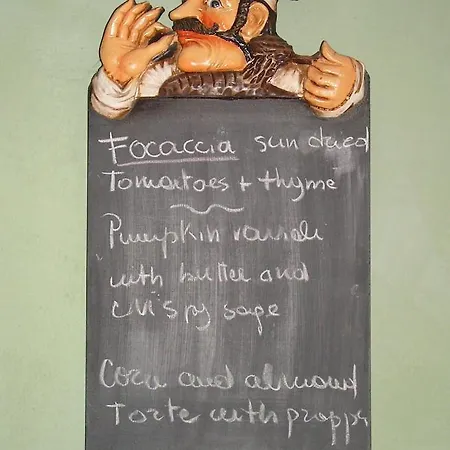 Focaccia sun dried
Tomatoes + thyme
Pumpkin ravioli
with butter and
crispy sage
Corn and almond
Torte with